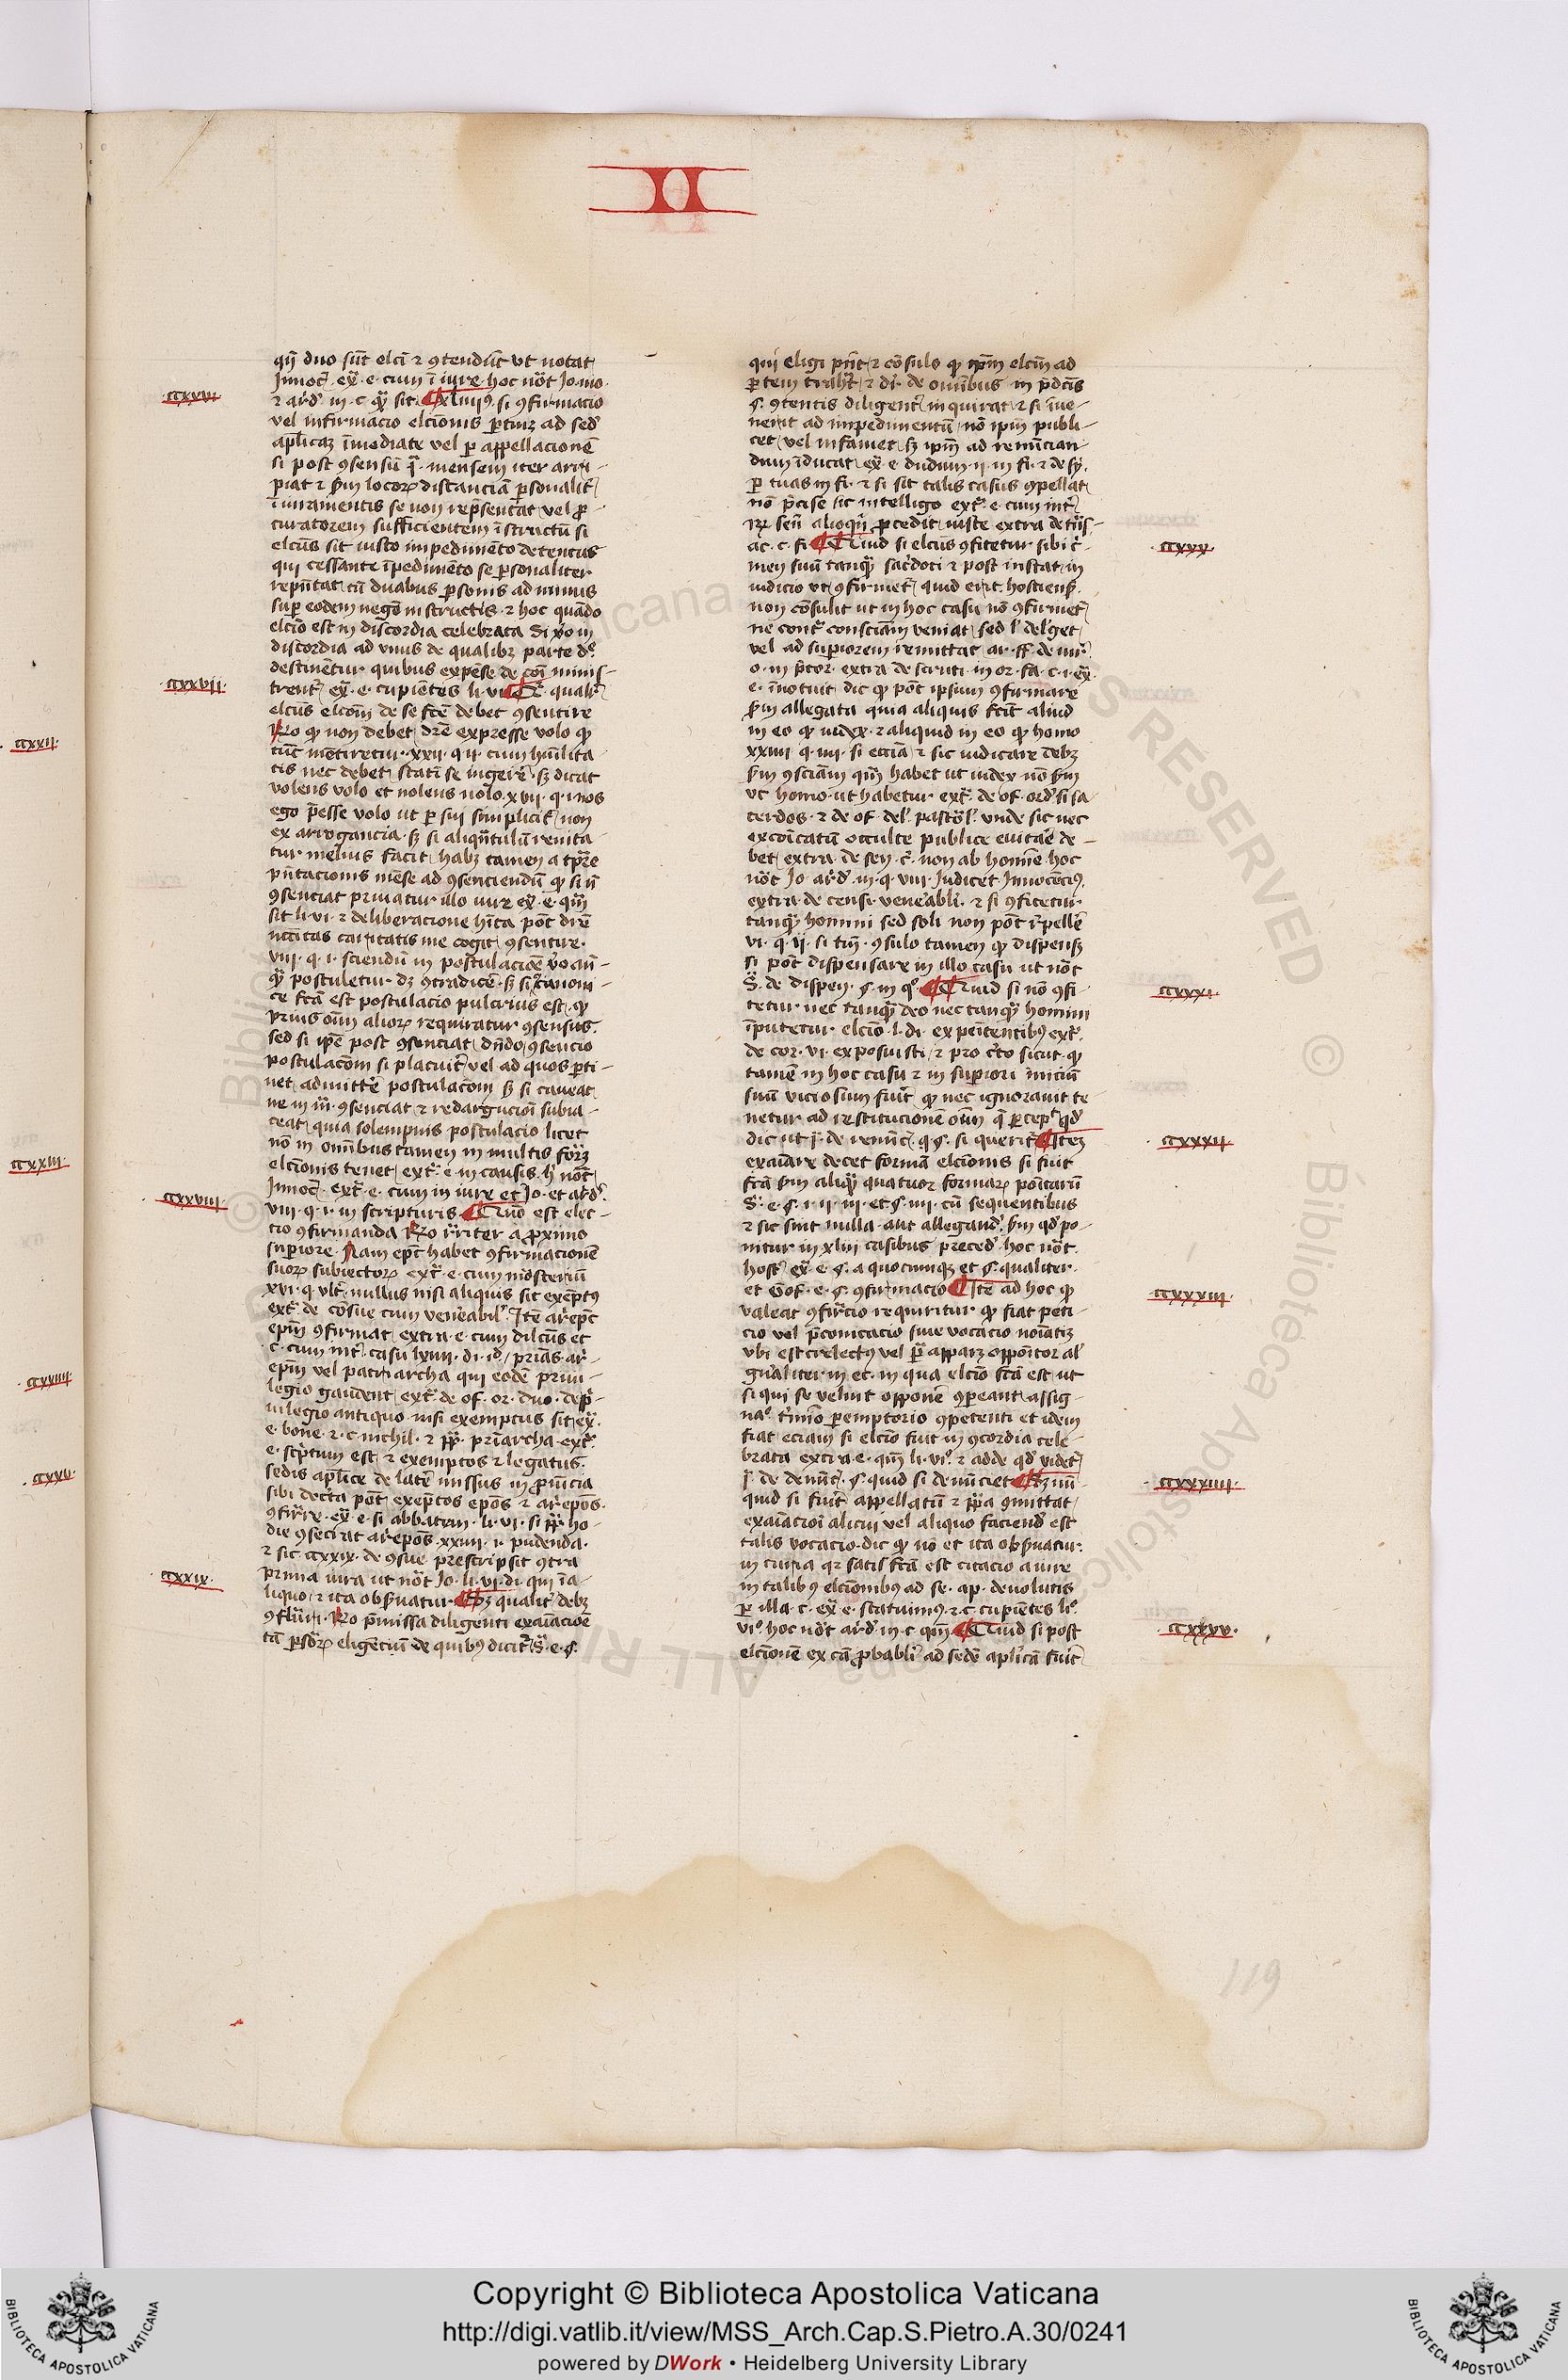 II
qn̄ duo sūt elc̄i ⁊ ꝯtendūt vt notat
Innoc̄. ex̄. e. cum ī iure. hoc nōt Jo. mo.
⁊ ard̓. in. c. qꝫ sit. Xliiiiꝰ. si ꝯfirmacio
vel infirmacio elc̄ionis ꝑtinꝫ ad sed̓
aplicaꝫ īmediate vel ꝑ appellacionē
si post ꝯsensū. mensem iter arri-
piat ⁊ ẜm locoꝝ distanciā ꝑsonalit̓
iuramentis se non rep̄sentāt vel ꝓ-
curatorem sufficientem īstructū si
elcūs sit iusto impedimēto detentus
qui cessante īpedimēto se ꝑsonaliter
repn̄tat cū duabus ꝑsonis ad minus
suꝑ eodem nego instructis. ⁊ hoc quādo
elcīo est in discordia celebrata Si v̓o in
discordia ad vnus de qualibꝫ parte d.
destinētur quibus expēse de coi minis-
trent̓ ex̄. e. cupiētes li. vi. qualr̓
elcūs elcōni de se fcē debet ꝯsentire
Ro ꝙ non debet dr̄e expresse volo ꝙ
tūc mētiretur. xxii. q. ii. cum hu̓ilita
tis nec debet statī se ingerē. sꝫ dicat
volens volo et nolens nolo. xvii. q. i. nos
ego p̄esse volo ut ꝑ sui simplicit̓ non
ex arrogancia. sꝫ si aliqn̄tulū renita
tur melius facit. habꝫ tamen a tp̄re
pn̄tacionis mēse ad ꝯsenciendū ꝙ si n̄
ꝯsenciat priuatur illo iure ex̄. e. qm̄
sit li. vi. ⁊ deliberacione hīta pōt dr̄e
nccītas caritatis me cogit ꝯsentire.
viii. q. i. sciendū in postulacōe v̓o cū-
qꝫ postuletur dꝫ ꝯtradicē. sꝫ si canoni-
ce fcā est postulacio pulcrius est. ꝙ
prius oīm alioꝝ requiratur ꝯsensus.
sed si ip̄e post ꝯsenciat dn̄do ꝯsencio
postulacōni si placuit̓ vel ad quos ꝑti-
net admittē postulacōni sꝫ si caueat
ne in ꝯsenciat ⁊ redargucioī subia-
ceat quia solempnis postulacio licet
nō in omībus tamen in multis forꝫ
elcīonis tenet ext̓. e. in causis. hͥ nōt
Innoc̄. ext̓. e. cum in iure et Jo. et ard̓.
viii. q. i. in scripturis. Quō est elec-
tio ꝯfirmanda Ro r̓riter a proximo
suꝑiore. Nam epc̄ habet ꝯfirmacionē
suoꝝ subiectoꝝ ext̓. e. cum mōsteriū
xvi. q. vlt. nullus nisi aliquis sit exēptꝰ
ext̓. de cōsue cum venerabil̓. Itē arepc̄
epm̄ ꝯfirmat extra. e. cum dilcūs et
c. cum int̓ casu lxiiii. di. prias ar-
epm̄ vel patriarcha qui eodē priui-
legio gaudent ext̓. de of. or. duo. de pri-
uilegio antiquo nisi exemptus sit ex̄.
e. bone. ⁊ c. nichil. ⁊ priarcha ext̓.
e. scptum est ⁊ exemptos ⁊ legatus.
sedis aplice de latē missus in ꝓuīcia
sibi decta pōt exēptos epōs ⁊ arepōs.
ꝯfir̓re. ex̄. e. si abbatem. li. vi. si pp̄ ho-
die ꝯsecrat arepōs. xxiiii. i. pudenda.
⁊ sic cxxix. de ꝯsue prescripsit ꝯtra
prima iura ut nōt Jo. li. vi. di. qui īa-
liquo. ⁊ ita obẜuatur. Sꝫ qualit̓ debꝫ
ꝯfirri. Ro p̄missa diligenti exaīacioē
tā ꝑsōꝝ eligētiū de quibꝰ dicit̓. S̄. e. §.
qui eligi pn̄t. ⁊ cōsulo ꝙ ip̄m elcm̄ ad
ꝑtem trahꝫ ⁊ di. de omībus in p̄dcīs
§. ꝯtentis diligent̓ inquirat ⁊ si īue-
nerit ad impedimentū nō ip̄m publi-
cet vel infamet sꝫ ip̄m ad renūcian-
dum īducat ex̄. e. dudum. ii. in fi. ⁊ de sy.
ꝑ tuas in fi. ⁊ si sit talis casus ꝯpellat
nō p̄cise sic intelligo ext̓. e. cum int̓
R. seni alioqn̄ ꝓcedit iuste extra de trās-
ac. c. fi. Quid si elcūs ꝯfitetur sibi cri-
men suū tanqꝫ sac̓doti ⁊ post instat in
iudicio vt ꝯfirmet̓ quid erit. hostiens̓.
non cōsulit ut in hoc casu nō ꝯfirmet
ne cont̓ consciam veniat sed l delget
vel ad suꝑiorem remittat ar. ff. de iur̓.
o. in p̄tor. extra de scruti. in or. fa. c. i. ex̄.
e. inotuit dic ꝙ pōt ipsum ꝯfirmare
ẜm allegata quia aliquis scit aliud
in eo ꝙ iudex. ⁊ aliquid in eo ꝙ homo
xxiii. q. iiii. si eccīa ⁊ sic iudicare debꝫ
ẜm ꝯsciam qm̄ habet ut iudex nō ẜm
vt homo. ut habetur ext̓. de of. ord̓ si sa
cerdos. ⁊ de of. del̓. pastōl̓. vnde sic nec
excoīcatū occulte publice euitare de-
bet extra de sen. non ab homīe hoc
nōt Jo. ard̓. iii. q. viii. Judicet Innocēciꝰ.
extra. de censi. venerabli. ⁊ si ꝯfitetur
tanqꝫ homini sed soli non pōt repellē
vi. q. ii. si tm̄. ꝯsulo tamen ꝙ dispensꝫ
si pōt dispensare in illo casu ut nōt
S̄. de dispen. §. in qͦ. Quid si nō ꝯfi-
tetur nec tanqꝫ deo nec tanqꝫ homini
īputetur elcīo. l. di. ex penitentibꝰ ext̓.
de cor. vi. exposuisti ⁊ pro c̓to sicut. ꝙ
tamē in hoc casu ⁊ in suꝑiori iniciū
suū viciosum fuit ꝙ nec ignorauit te-
netur ad restitucionē oīm q̄ ꝑcep̓ qd̓
dic ut j. de renūc̄. q. §. si querit̓ Iteꝫ
exaīare decet formā elcīonis si fuit
fcā ẜm aliqꝫ quatuor formaꝝ poītarū
S̄. e. §. i. ii. iii. et §. iiii. cū sequentibus
⁊ sic sint nulla aut allegand̓. ẜm qd̓ po-
nitur in xliii casibus preced̓. hoc nōt.
host̓ ex̄. e. §. a quocumqꝫ et §. qualiter.
et Gof. e. §. ꝯfirmacio Itē ad hoc ꝙ
valeat ꝯfir̓cio requiritur ꝙ fiat peti-
cio vel p̄conicacio siue vocacio noīatiꝫ
vbi est elect̓ꝰ vel p̄ apparꝫ oppoītor al̓
gn̄aliter in ec. in qua elcīo fcā est ut
si qui se velint opponē ꝯpareant assig-
naͦ. t̓mīo ꝑemptorio ꝯpetenti et idem
fiat eciam si elcīo fuit in ꝯcordia cele-
brata extra. e. qm̄ li. viͦ. ⁊ adde qd̓ videt̓
j. de denūc̄. §. quid si denūciet Sꝫ nū-
quid si fuit appellatū ⁊ pp̄a ꝯmittat
exaīacioī alicui vel aliquo faciend̓ est
talis vocacio. dic ꝙ nō et ita obẜuatur.
in curia qꝛ satis fcā est citacio a iure
in talibꝰ elcīonibus ad se. ap. deuolutis
ꝑ illa. c. ex̄. e. statuimꝰ. ⁊ c. cupiētes liͦ.
viͦ. hoc nōt ard̓. in. c. qm̄ Quid si post
elcīonē ex cā ꝓbabli ad sedē aplicā fuit
cxxvi
cxxvii
cxxviii
cxxix
cxxx
cxxxi
cxxxii
cxxxiii
cxxxiiii
cxxxv
cxxii
cxxiii
cxxiiii
cxxv
119
Copyright © Biblioteca Apostolica Vaticana
http://digi.vatlib.it/view/MSS_Arch.Cap.S.Pietro.A.30/0241
powered by DWork • Heidelberg University Library
BIBLIOTECA APOSTOLICA VATICANA
BIBLIOTECA APOSTOLICA VATICANA